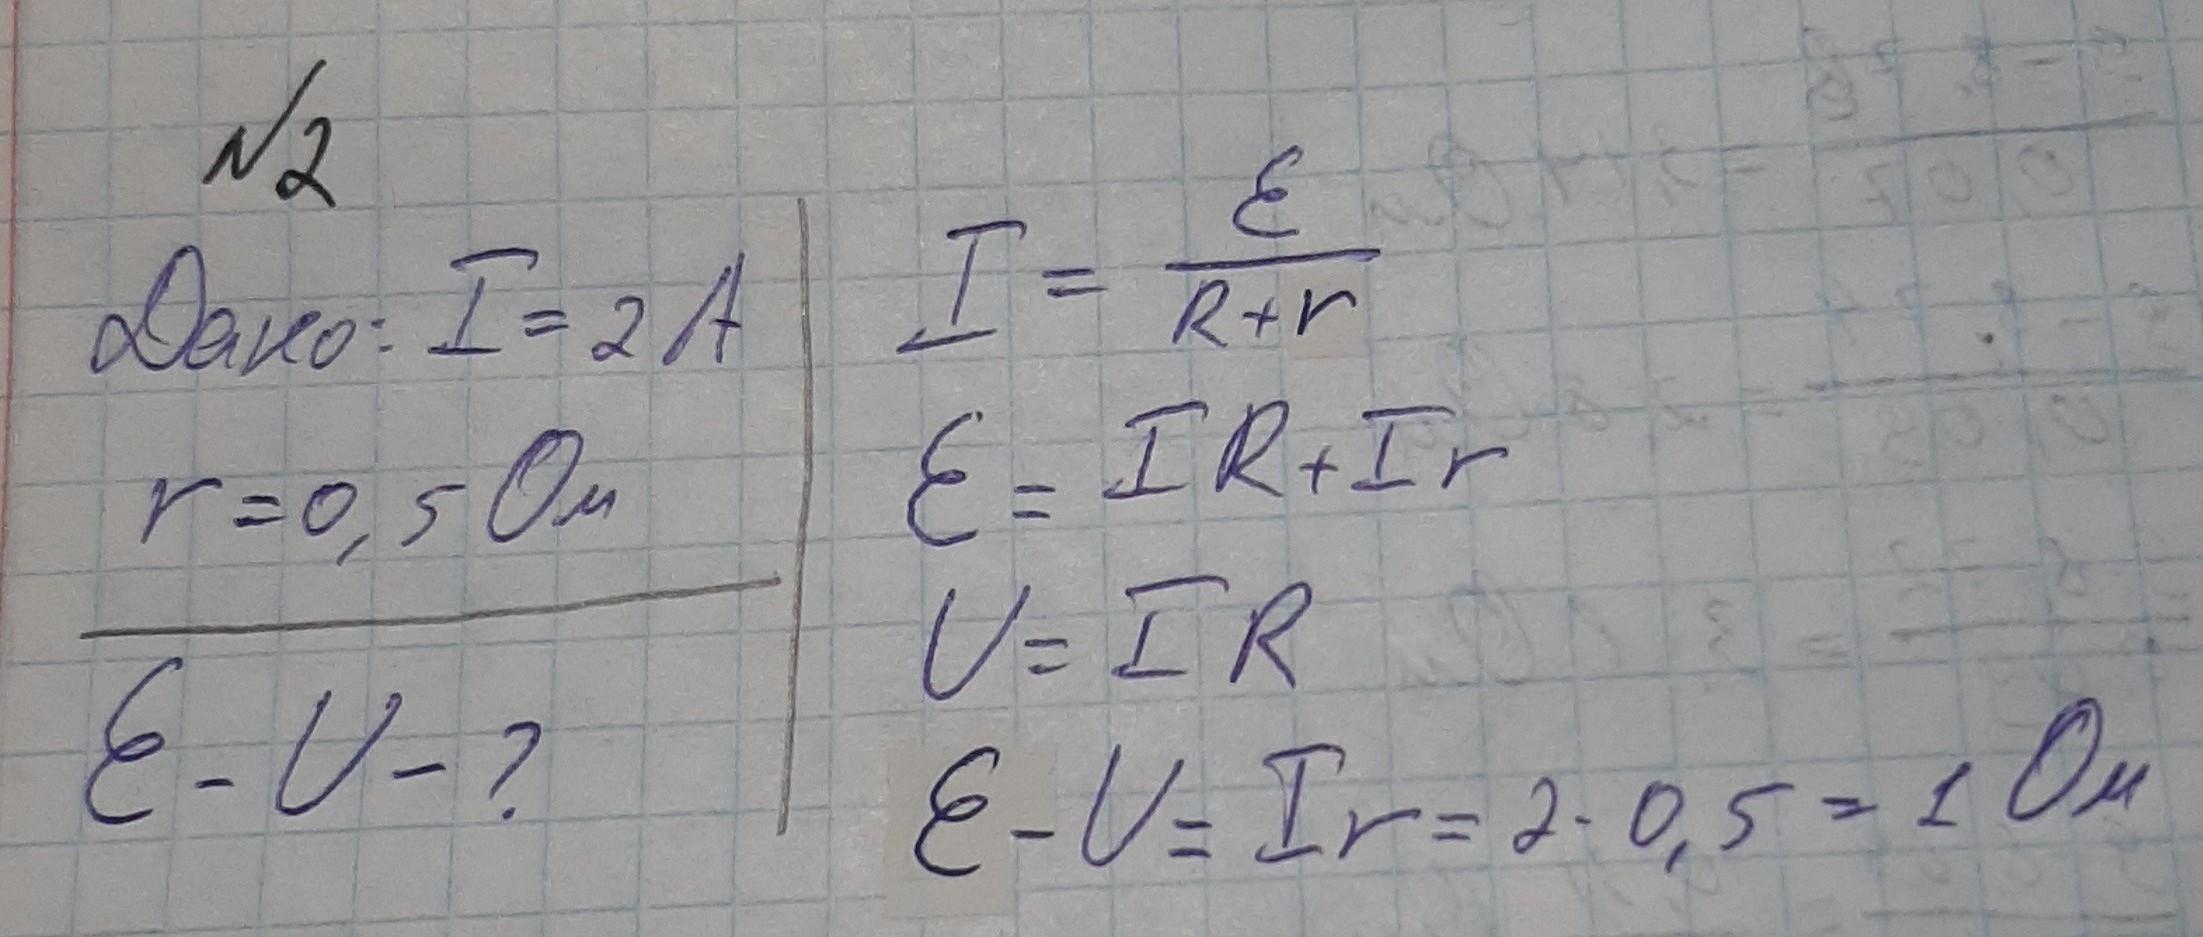 №2
Дано: I = 2 А
r = 0,5 Ом
ε - U - ?
I = ε / (R + r)
ε = IR + Ir
U = IR
ε - U = Ir = 2 · 0,5 = 1 Ом